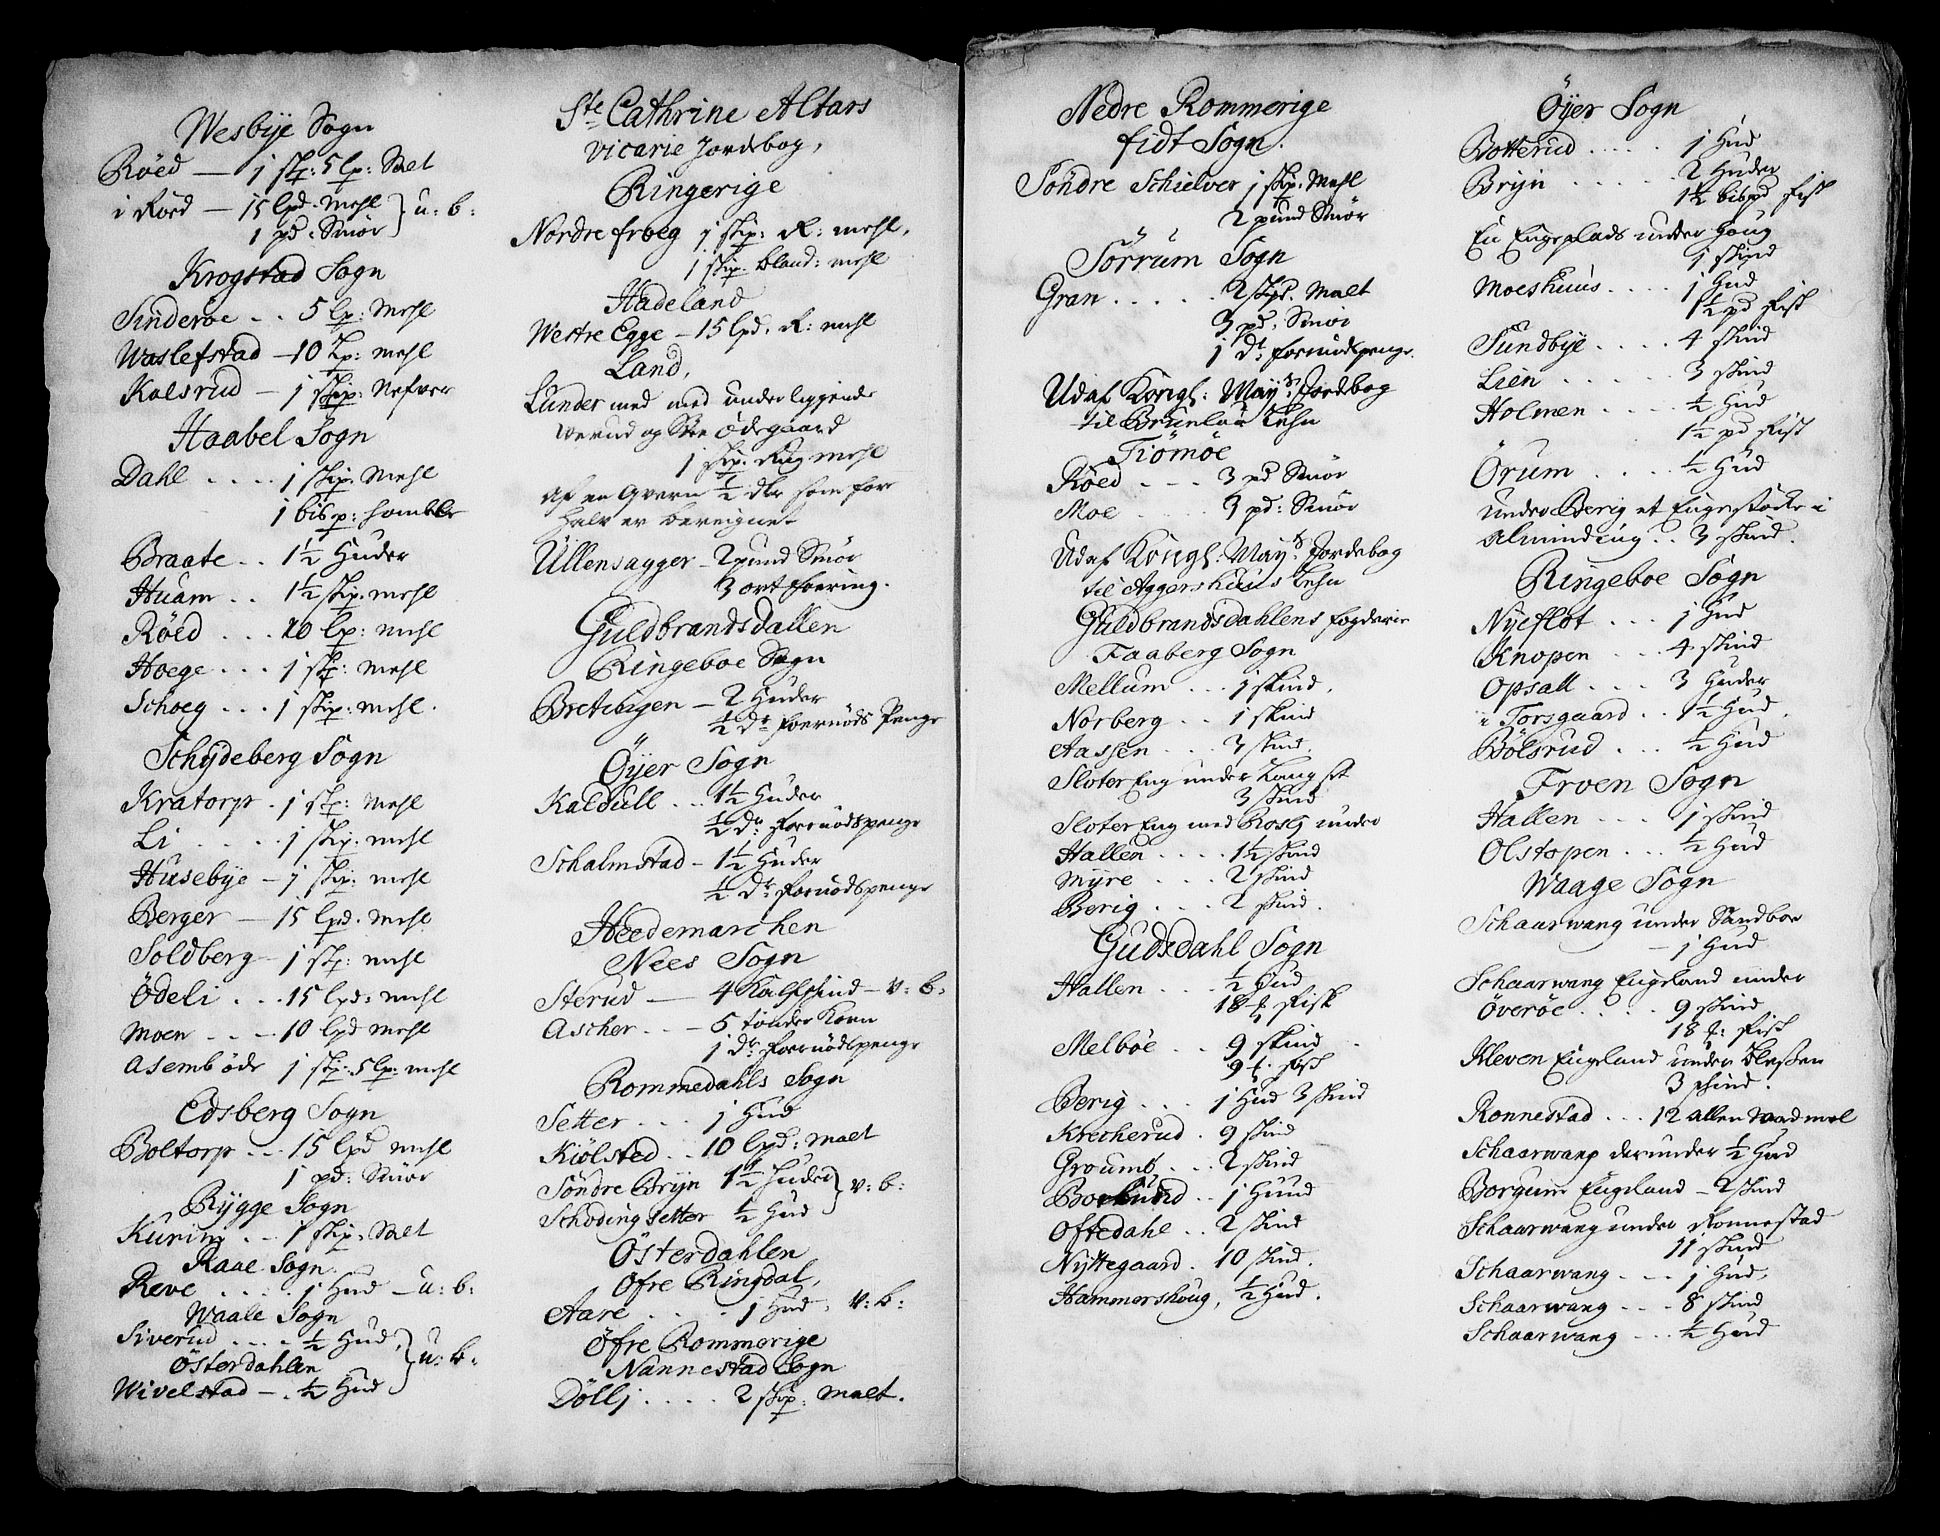 Wesbÿe Sogn
Röed — 1 skp: 5 lp: Salt
i Röed — 15 lpd. Mehl } u: b:
1 pd: Smör
Krogstad Sogn
Sinderöe . . 5 lp: Mehl
Waslefstad — 10 Lp: mehl
Kolsrud — 1 skip: Nefver
Haabel Sogn
Dahl . . . . 1 skip. Mehl
1 bisp: homble
Braate . . 1½ Huder
Huam . . 1½ skip. mehl
Röed . . . 10 lp: mehl
Hoege . . . 1 skp: mehl
Schoeg . . . 1 skip: mehl.
Schÿdeberg Sogn
Kratorp . 1 skp: mehl
Li . . . . . 1 skip: mehl
Husebÿe — 1 skip: mehl
Berger — 15 lpd. mehl
Soldberg — 1 skp: mehl
Ödeli . . . 15 lpd: mehl
Moen . . — 10 lpd mehl
Asemböde 1 skp: 5 lp: mehl
Edsberg Sogn
Boltorp . . . 15 lpd mehl
1 pd: Smör
Rÿgge Sogn
Kuring . . . 1 skip. Salt
Raae Sogn
Reve . . . . . 1 Hud — u: b:
Waale Sogn
Siverud . . . . ½ Hud, } u: b:
Österdahlen
Wivelstad — . ½ Hud
Ste Cathrine Altars
vicarie Jordebog,
Ringerige
Nordre froeg 1 skip: R: mehl,
1 skip. bland: mehl
Hadeland
Westre Egge — 15 lpd. R: mehl
Land,
Lunder med med underliggende
Werud og Ödegaard
1 skip. Rug mehl
Af en Qvern ½ dlr som for
halv er bereignet
Üllensagger — 2 pund Smör
3 ort foering.
Guldbrandsdallen
Ringeboe Sogn
Bretingen — 2 Huder
½ Dr foernöds Penge
Öÿer Sogn
Kaldull . . . 1½ Huder
½ Dr: foernödspenge
Schalmstad — 1½ Huder
½ Dr: fornödspenge
Heedemarchen
Nees Sogn
Sterud — 4 Kalfskind — v: b:
Ascher . . . — 5 tönder Korn
1 dr: foernödspenge
Rommedahls Sogn
Setter . . . . 1 Hud
Kiölsted . . 10 lpd: malt
Söndre Brÿn 1½ Huder } v: b:
Schoding setter ½ Hud
Österdahlen
Öfre Ringdal,
Aare . . . . . 1 Hud, v: b:
Öfre Rommerige
Nannestad Sogn
Döllj . . . . 2 skip: malt.
Nedre Rommerige
fidt Sogn.
Söndre Schielver 1 skip: Mehl
2 pund Smör
Sörrum Sogn
Gran . . . . . 2 skpd. Malt
3 pd, Smör
1 dr. fornödspenge.
Udaf Kongl: Mayts Jordebog
til Brunlau Lehn
Tiömöe
Röed . . . 3 pd Smör
Moe . . . . 3 pd: Smör
Udaf Kongl: Mayts Jordebog
til Aggershuus Lehn
Guldbrandsdahlens fogderie
Faaberg Sogn
Mellum . . . 1 skind.
Norberg . . 1 skind
Aassen . . . 3 skind.
Sloter Eng under
3 skind
Sloter Eng med under
Hallen . . . . 1½ skind
Mÿre . . . 2 skind
Berig . . . 2 skind.
Gudsdahl Sogn
Hallen . . . ½ Hud
18 fisk
Melböe . . 9 skind
9 fisk
Berig . . . 1 Hud 3 skind
Krecherud . 9 skind
Groumb . . . 2 skind
. . 1 Huud
Oftedahl . . 2 skind
Nÿttegaard . 10 skind.
Hammershoug, ½ Hud.
Öÿer Sogn
Botterud . . . . . 1 Hud
Brÿn . . . . . 2 Huder
1½ bispd fisk
En Engeplads under Houg
1 skind
Moeshuus . . . . 1 Hud
1½ pd fisk
Sundbÿe . . . . 4 skind
Lien . . . . . 3 skind
Holmen . . . . ½ Hud
1½ pd fisk
Örum . . . . ½ Hud
under Berig et Engestöcke i
Alminding . . 3 skind.
Ringeboe Sogn
Nÿeflot . . . 1 Hud
Knopen . . . 4 skind
Opsall . . . . 3 Huder
i Torsgaard . . 1½ Hud.
Bölsrud . . . ½ Hud
Froen Sogn
Hallen . . . 1 skind
Olstopen . . . ½ Hud
Waage Sogn
Schaarwang under Sandboe
— 1 Hud
Schaarwang Engeland under
Överöe . . . . . 9 skind
18 fisk
Kleven Engeland under Blessen
3 skind.
Ronnestad . . . 12 allen Vardmel
Schaarwang derunder ½ Hud
Borgum Engeland — 2 skind
Schaarwang under Ronnestad
11 skind
Schaarwang . . . 1 Hud,
Schaarwang . . . 8 skind
Schaarwang . . . ½ Hud